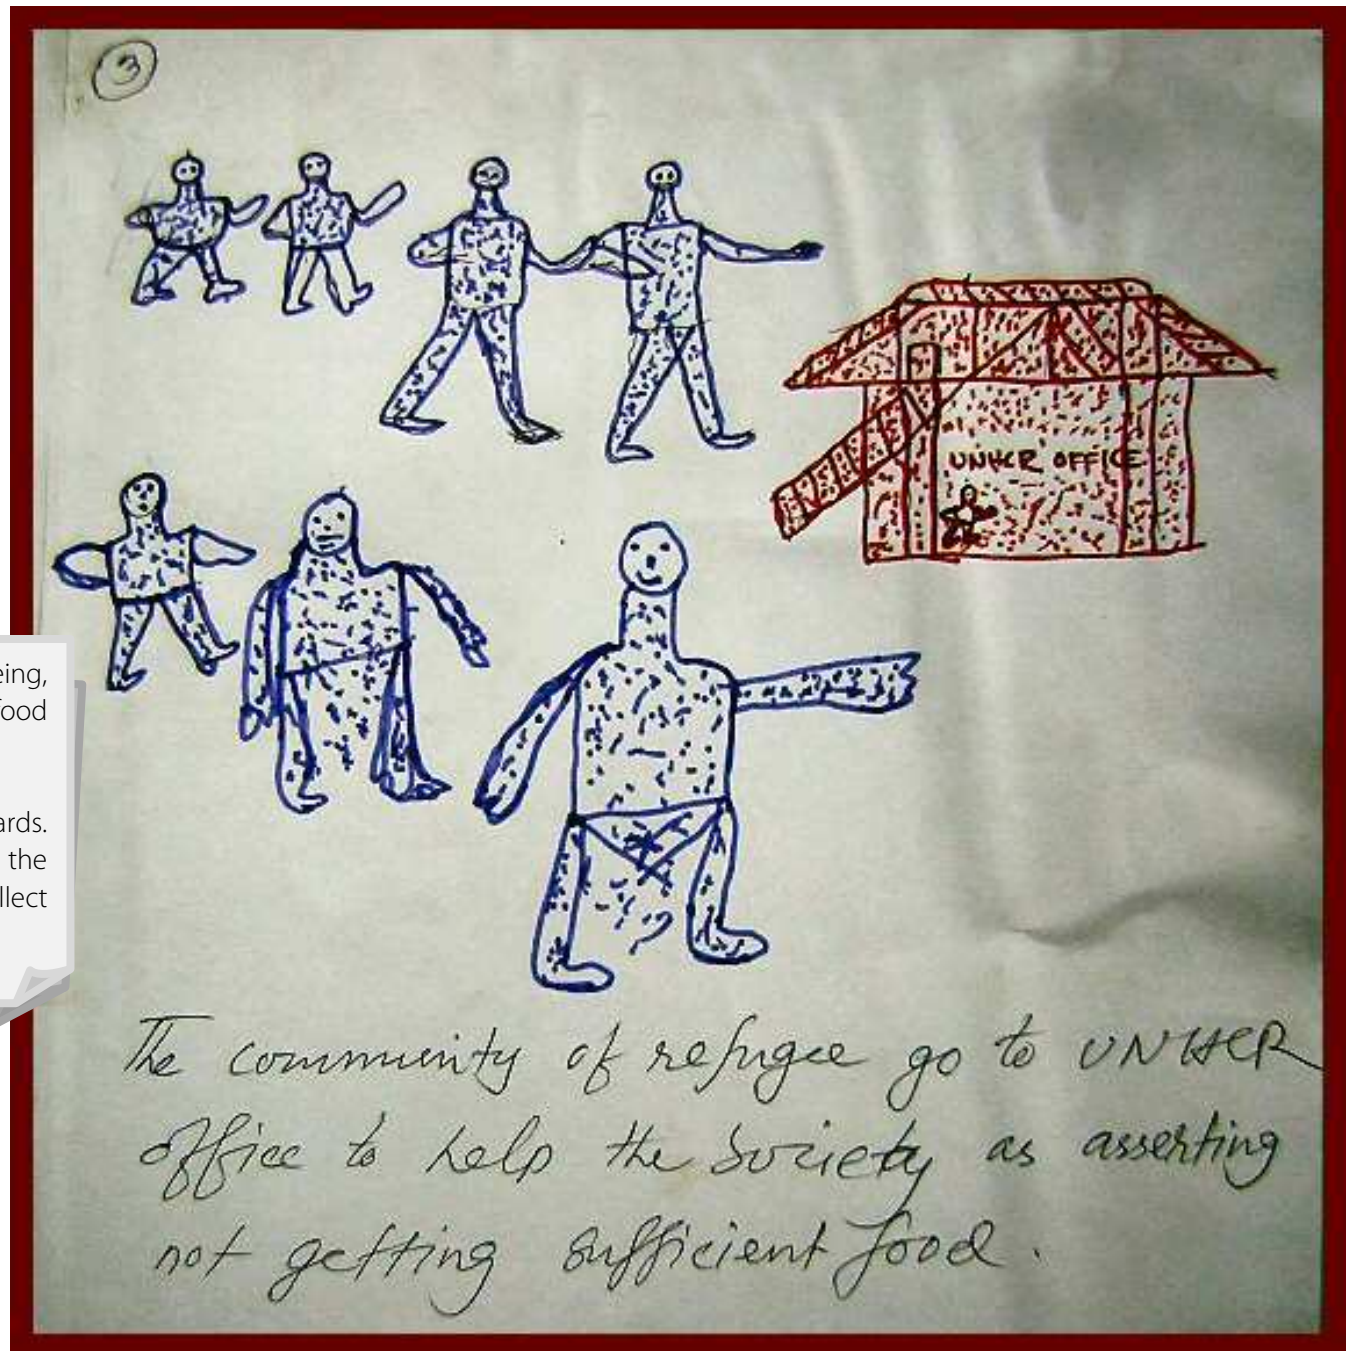 3
UNHCR OFFICE
eing,
food
ards.
the
llect
The community of refugee go to UNHCR
office to help the society as asserting
not getting sufficient food.